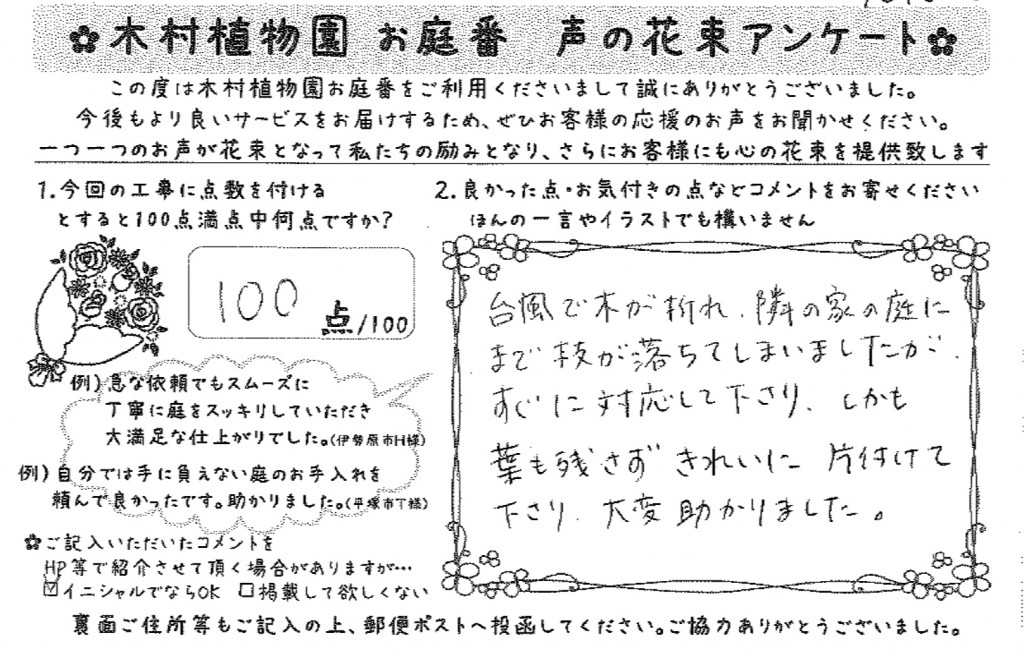 ✿木村植物園 お庭番 声の花束アンケート✿
この度は木村植物園お庭番をご利用くださいまして誠にありがとうございました。
今後もより良いサービスをお届けするため、ぜひお客様の応援のお声をお聞かせください。
一つ一つのお声が花束となって私たちの励みとなり、さらにお客様にも心の花束を提供致します
1.今回の工事に点数を付ける
とすると100点満点中何点ですか?
100 点/100
例)急な依頼でもスムーズに
丁寧に庭をスッキリしていただき
大満足な仕上がりでした。(伊勢原市H様)
例)自分では手に負えない庭のお手入れを
頼んで良かったです。助かりました。(平塚市T様)
✿ご記入いただいたコメントを
HP等で紹介させて頂く場合がありますが…
☑イニシャルでならOK □掲載して欲しくない
2.良かった点・お気付きの点などコメントをお寄せください
ほんの一言やイラストでも構いません
台風で木が折れ、隣の家の庭に
まで枝が落ちてしまいましたが、
すぐに対応して下さり、しかも
葉も残さず きれいに 片付けて
下さり、大変助かりました。
裏面ご住所等もご記入の上、郵便ポストへ投函してください。ご協力ありがとうございました。